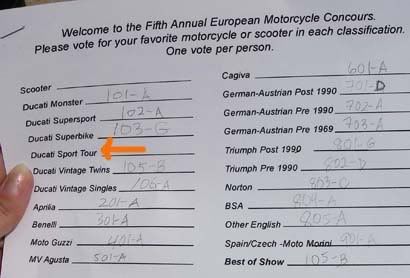 Welcome to the Fifth Annual European Motorcycle Concours.
Please vote for your favorite motorcycle or scooter in each classification.
One vote per person.
Scooter
Ducati Monster 101-A
Ducati Supersport 102-A
Ducati Superbike 103-G
Ducati Sport Tour
Ducati Vintage Twins 105-B
Ducati Vintage Singles 106-A
Aprilia 201-A
Benelli 301-A
Moto Guzzi 401-A
MV Agusta 501-A
Cagiva 601-A
German-Austrian Post 1990 701-D
German-Austrian Pre 1990 702-A
German-Austrian Pre 1969 703-A
Triumph Post 1990 801-G
Triumph Pre 1990 802-D
Norton 803-C
BSA 804-A
Other English 805-A
Spain/Czech -Moto Morini 901-A
Best of Show 105-B